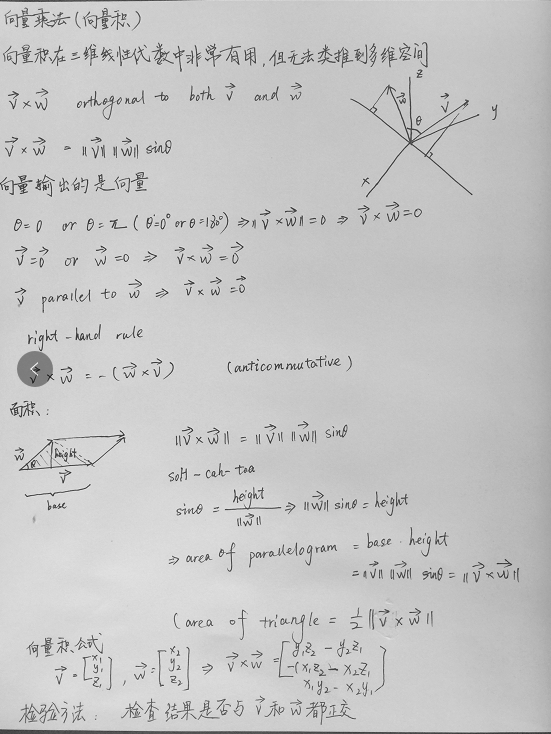 向量乘法(向量积)
向量积在三维线性代数中非常有用,但无法类推到多维空间
v⃗ × w⃗ orthogonal to both v⃗ and w⃗
v⃗ × w⃗ = ‖v⃗‖ ‖w⃗‖ sinθ
z
w⃗
v⃗
θ
y
x
向量输出的是向量
θ=0 or θ=π (θ=0° or θ=180°) ⇒ ‖v⃗×w⃗‖=0 ⇒ v⃗×w⃗=0
v⃗=0⃗ or w⃗=0 ⇒ v⃗×w⃗=0⃗
v⃗ parallel to w⃗ ⇒ v⃗×w⃗=0⃗
right-hand rule
v⃗×w⃗ = -(w⃗×v⃗) (anticommutative)
面积:
w⃗
θ
height
v⃗
base
‖v⃗×w⃗‖ = ‖v⃗‖ ‖w⃗‖ sinθ
soH-cah-toa
sinθ = height/‖w⃗‖ ⇒ ‖w⃗‖ sinθ = height
⇒ area of parallelogram = base · height
= ‖v⃗‖ ‖w⃗‖ sinθ = ‖v⃗×w⃗‖
(area of triangle = 1/2 ‖v⃗×w⃗‖
向量积公式
v⃗ = [x₁ y₁ z₁], w⃗ = [x₂ y₂ z₂] ⇒ v⃗×w⃗ = [y₁z₂ - y₂z₁ -(x₁z₂ - x₂z₁) x₁y₂ - x₂y₁]
检验方法: 检查结果是否与v⃗和w⃗都正交